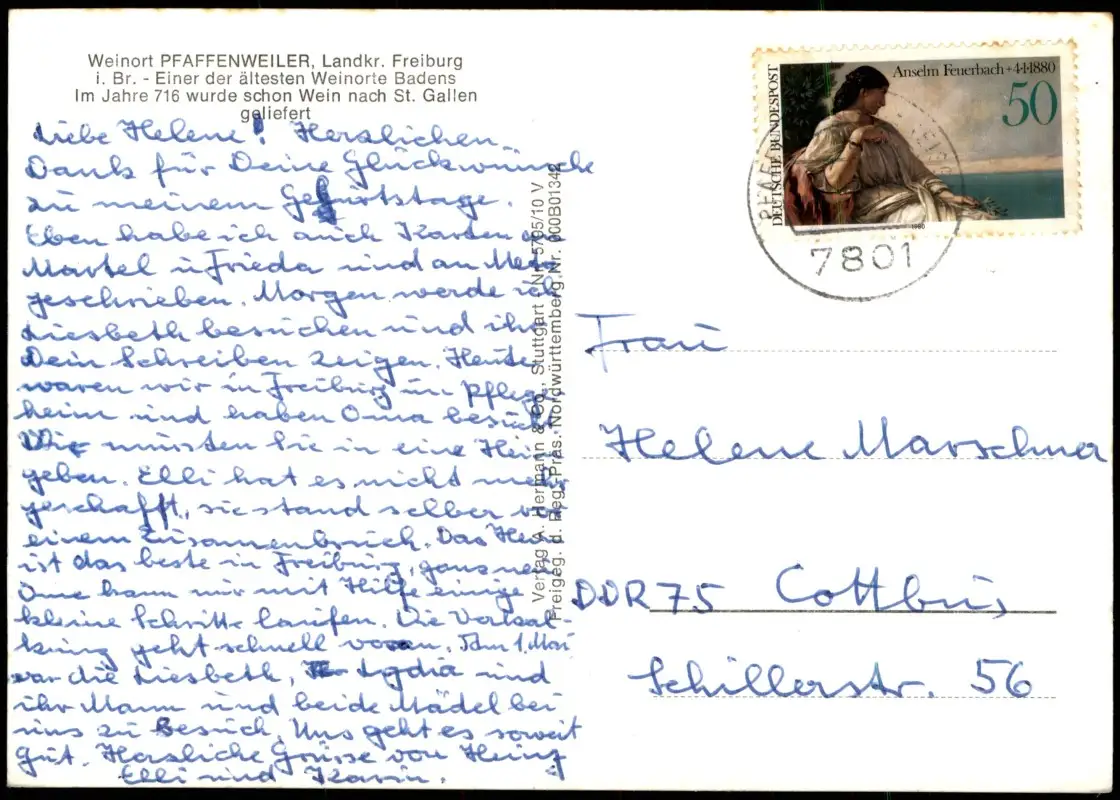 Weinort PFAFFENWEILER, Landkr. Freiburg
i. Br. - Einer der ältesten Weinorte Badens
Im Jahre 716 wurde schon Wein nach St. Gallen
geliefert
Liebe Helene! Herzlichen
Dank für Deine Glückwünsche
zu meinem Geburtstage.
Eben habe ich auch Karten an
Martel u Frieda und an
geschrieben. Morgen werde ich
Liesbeth besuchen und ihr
Dein Schreiben zeigen. Heute
waren wir in Freiburg im Pflege
heim und haben Oma besucht
Wir mussten Sie in eine Heim
geben. Elli hat es nicht mehr
geschafft, sie stand selber vor
einem Zusammenbruch. Das Heim
ist das beste in Freiburg, ganz neu
Oma kann nur mit Hilfe einige
kleine Schritte laufen. Die Verkal-
kung geht schnell voran. Am 1. Mai
war die Liesbeth, Lydia und
ihr Mann und beide Mädel bei
uns zu Besuch. Uns geht es soweit
gut. Herzliche Grüsse von Heinz
Elli und Karin.
Verlag A. Hermann & Co., Stuttgart - Nr. 5795/10 V
Freigeg. d. Reg. Präs. Nordwürttemberg Nr. 000B01342
DEUTSCHE BUNDESPOST
Anselm Feuerbach +4·1·1880
50
1980
7801
Frau
Helene Marschner
DDR 75 Cottbus
Schillerstr. 56